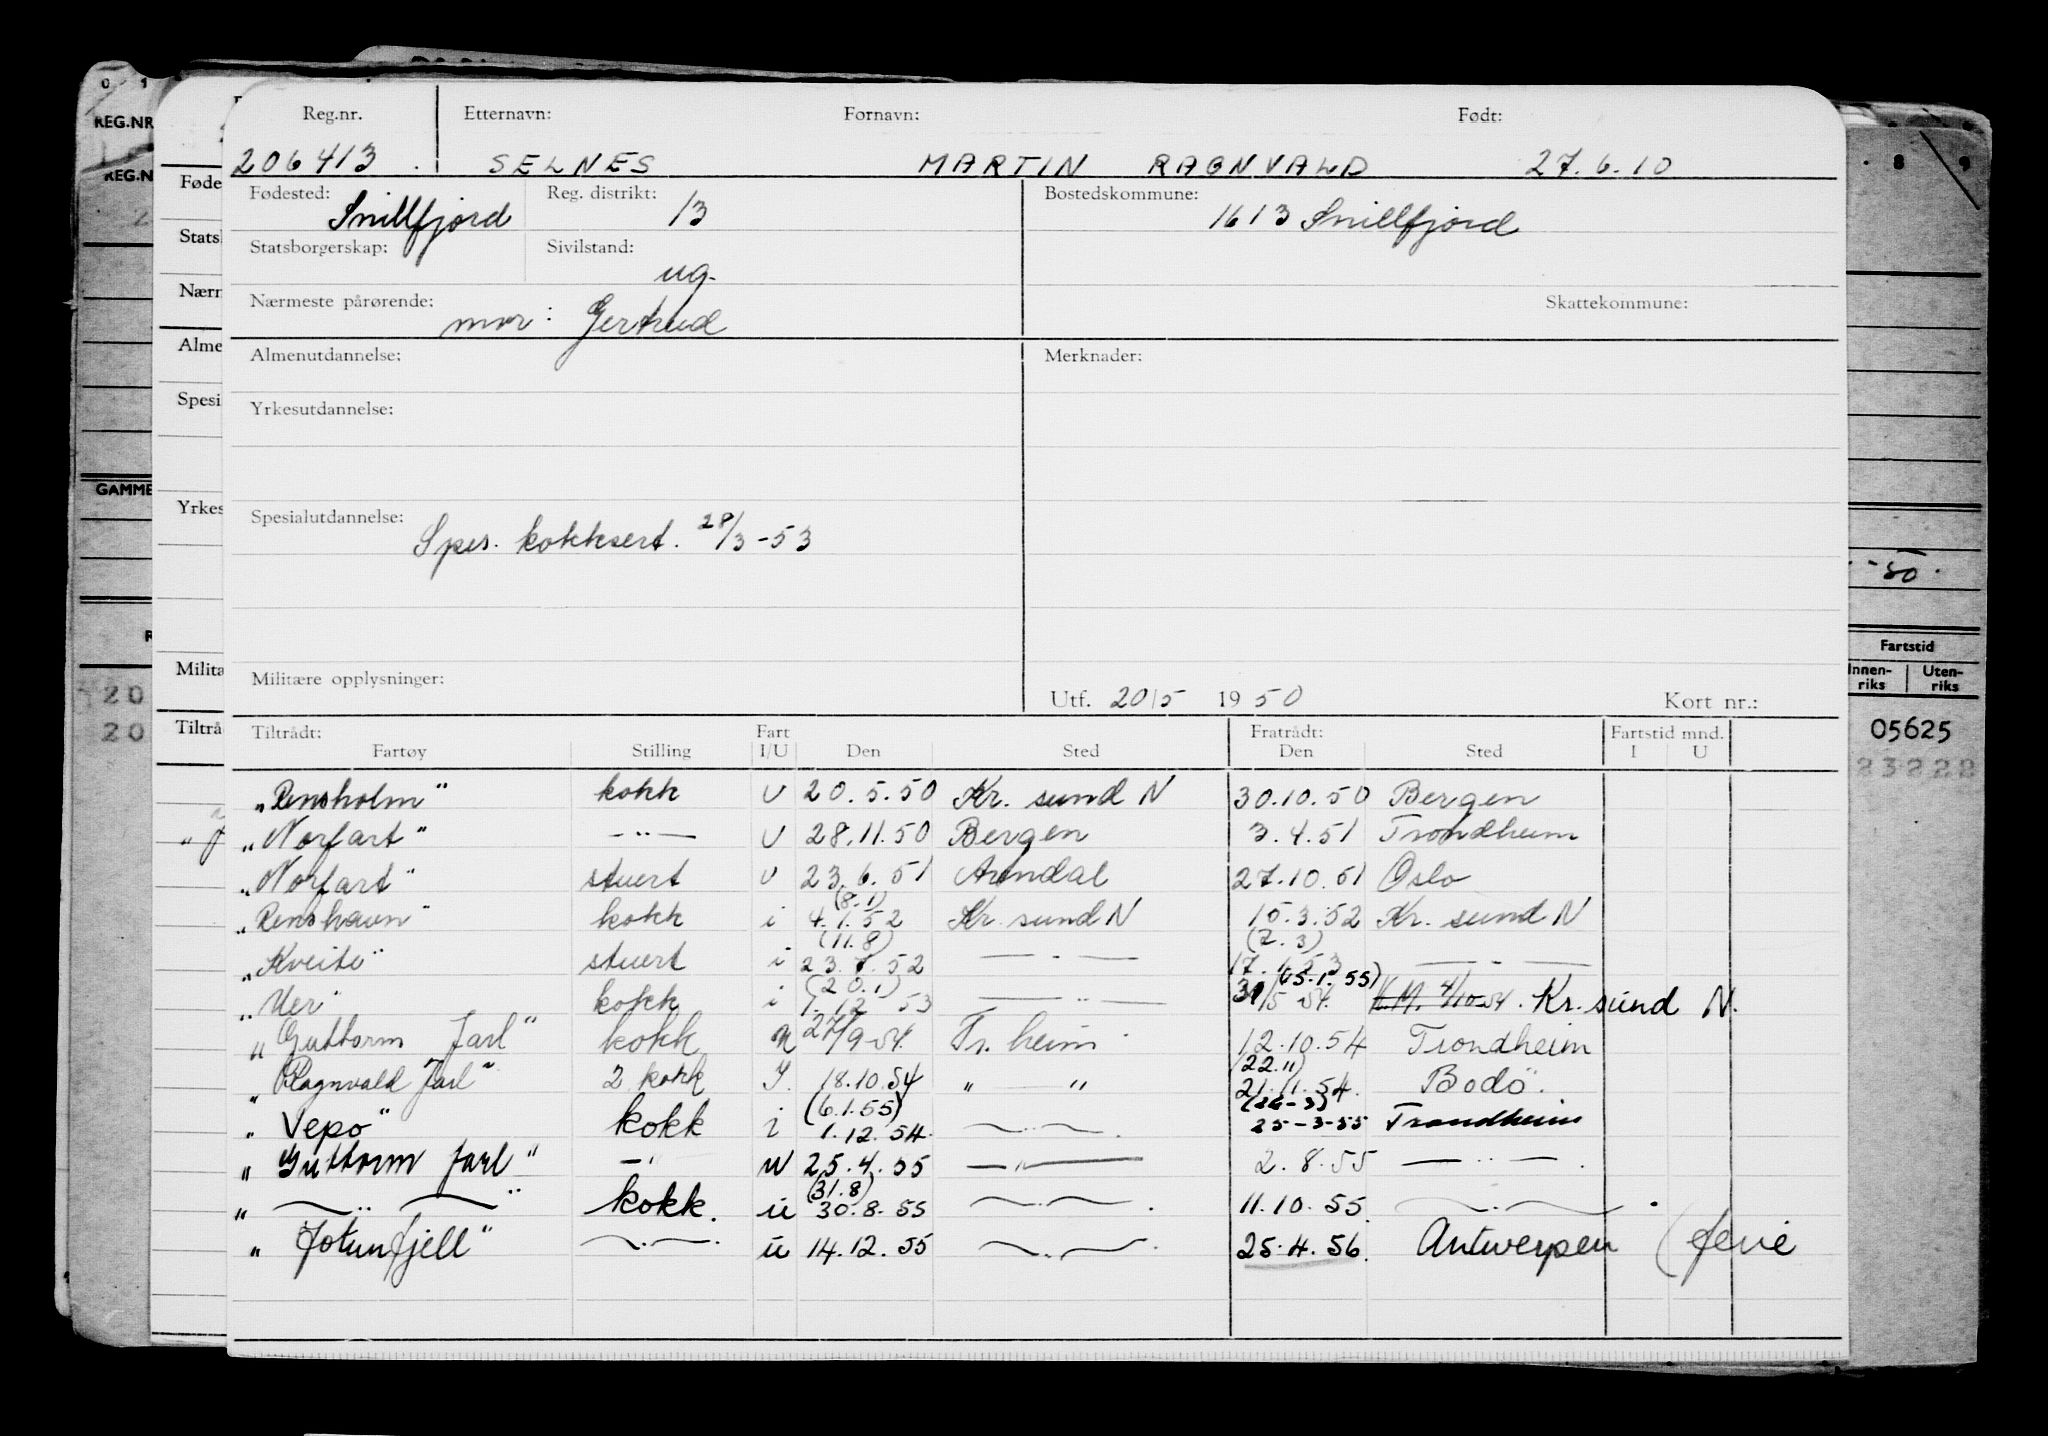 Reg.nr. Etternavn: Fornavn: Født:
206413 SELNES MARTIN RAGNVALD 27.6.10
Fødested: Snillfjord Reg. distrikt: 13 Bostedskommune: 1613 Snillfjord
Statsborgerskap: Sivilstand: ug.
Nærmeste pårørende: mor: Gertrud Skattekommune:
Almenutdannelse: Merknader:
Yrkesutdannelse:
Spesialutdannelse: Spes. kokksert. 28/3-53
Militære opplysninger: Utf. 20/5 1950 Kort nr.:
Tiltrådt: Fart Fratrådt: Fartstid mnd.
Fartøy Stilling I/U Den Sted Den Sted I U
"Rensholm" kokk U 20.5.50 Kr. sund N 30.10.50 Bergen
"Norfart" —"— U 28.11.50 Bergen 3.4.51 Trondheim
"Norfart" stuert U 23.6.51 Arendal 27.10.51 Oslo
(8.1)
"Renshavn" kokk i 4.1.52 Kr. sund N 15.3.52 Kr. sund N
(11.8) (7.3)
"Kveite" stuert i 23.7.52 —"— 17.1.53 —"—
(20.1) (65.1.55)
"Uer" kokk i 1.12 53 —"— 31/5 54. 4/10-54. Kr. sund N.
"Guttorm Jarl" kokk u 27/9-54. Tr. heim 12.10.54 Trondheim
(22.11)
"Ragnvald Jarl" 2 kokk I. 18.10.54 " " 21.11.54. Bodö.
(6.1.55) (26-3)
"Vepo" kokk i 1.12.54. —"—. 25-3-55 Trondheim
"Guttorm Jarl" —"— u 25.4.55 —"— 2.8.55 —"—.
(31.8)
" —"— " kokk. u 30.8.55 —"—. 11.10.55. —"—.
"Jotunfjell" —"—. u 14.12.55 —"—. 25.4.56. Antwerpen (ferie
REG.NR
REG.N
GAMME
Føde
Stats
Nærn
Alme
Spesi
Yrkes
Milita
Tiltrå
0 1
8 9
-50.
Fartstid
Innen-riks Uten-riks
05625
23228
20
20